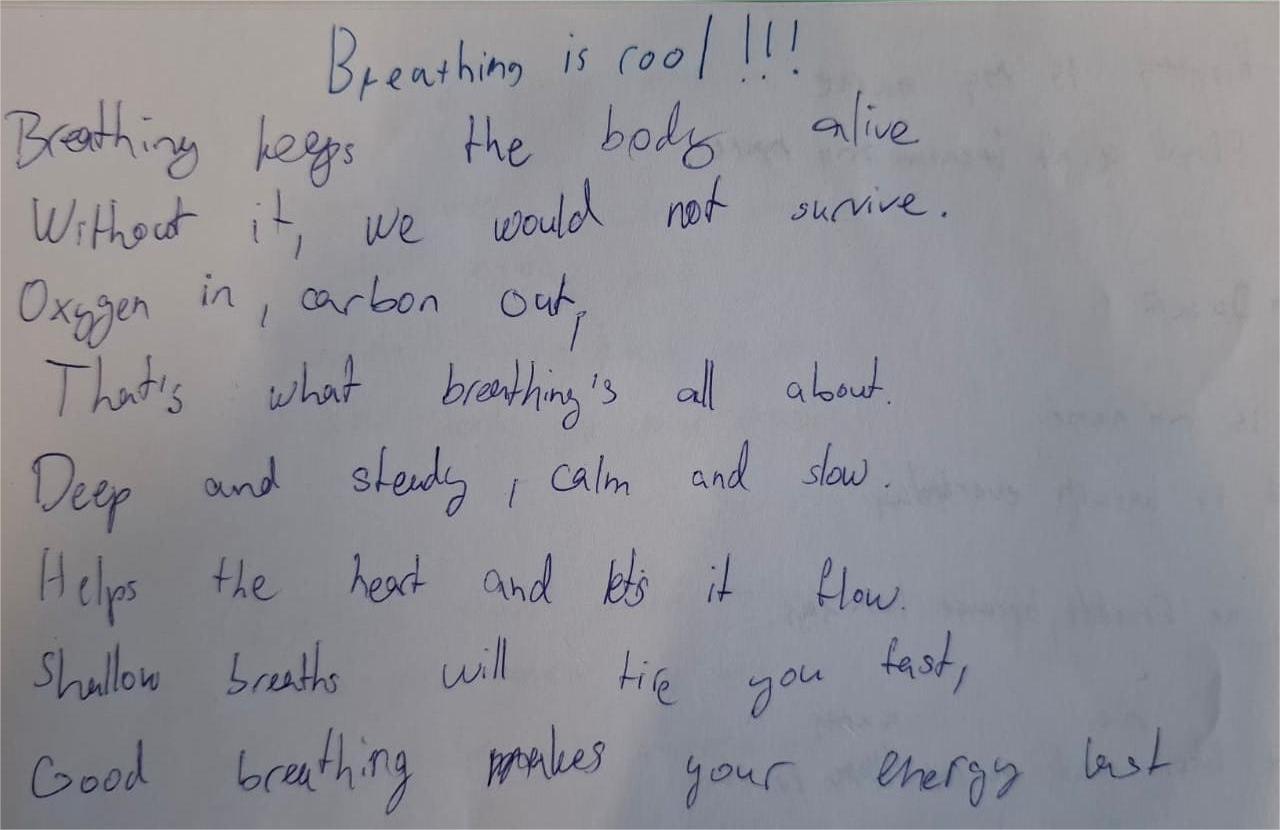 Breathing is cool!!!
Breathing keeps the body alive
Without it, we would not survive.
Oxygen in, carbon out,
That's what breathing's all about.
Deep and steady, calm and slow.
Helps the heart and let's it flow.
Shallow breaths will tire you fast,
Good breathing makes your energy last